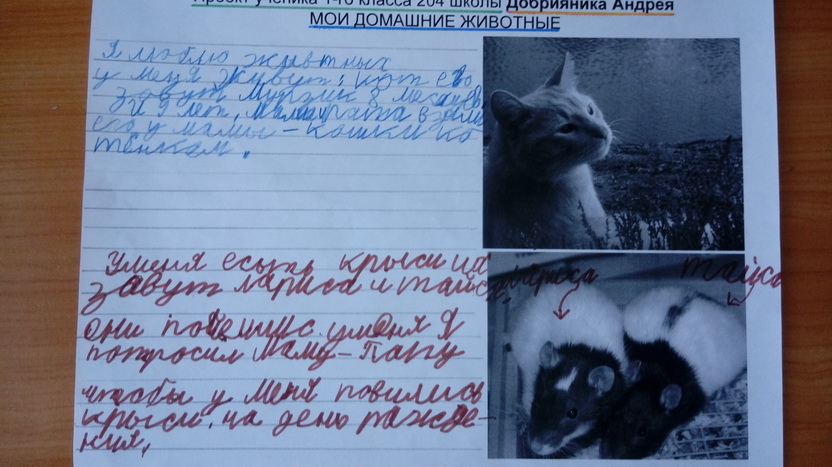 Проект ученика 1-го класса 204 школы Добрияника Андрея
МОИ ДОМАШНИЕ ЖИВОТНЫЕ
Я люблю живтных
у меня живут: кот его
завут Мурзик 8 месяцев
и 9 лет, мама
его у мамы-кошки ко
тёнком.
Уменя есть крыси их
завут лариса и таиса.
лариса
таиса
они повелис уменя Я
попросил маму-Папу
чтобы у меня повились
крыси. на день ражде-
ния,